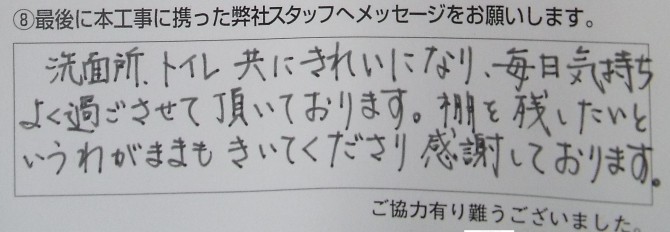 ⑧最後に本工事に携った弊社スタッフへメッセージをお願いします。
洗面所、トイレ 共にきれいになり、毎日気持ち
よく過ごさせて頂いております。棚を残したいと
いうわがままもきいてくださり感謝しております。
ご協力有り難うございました。